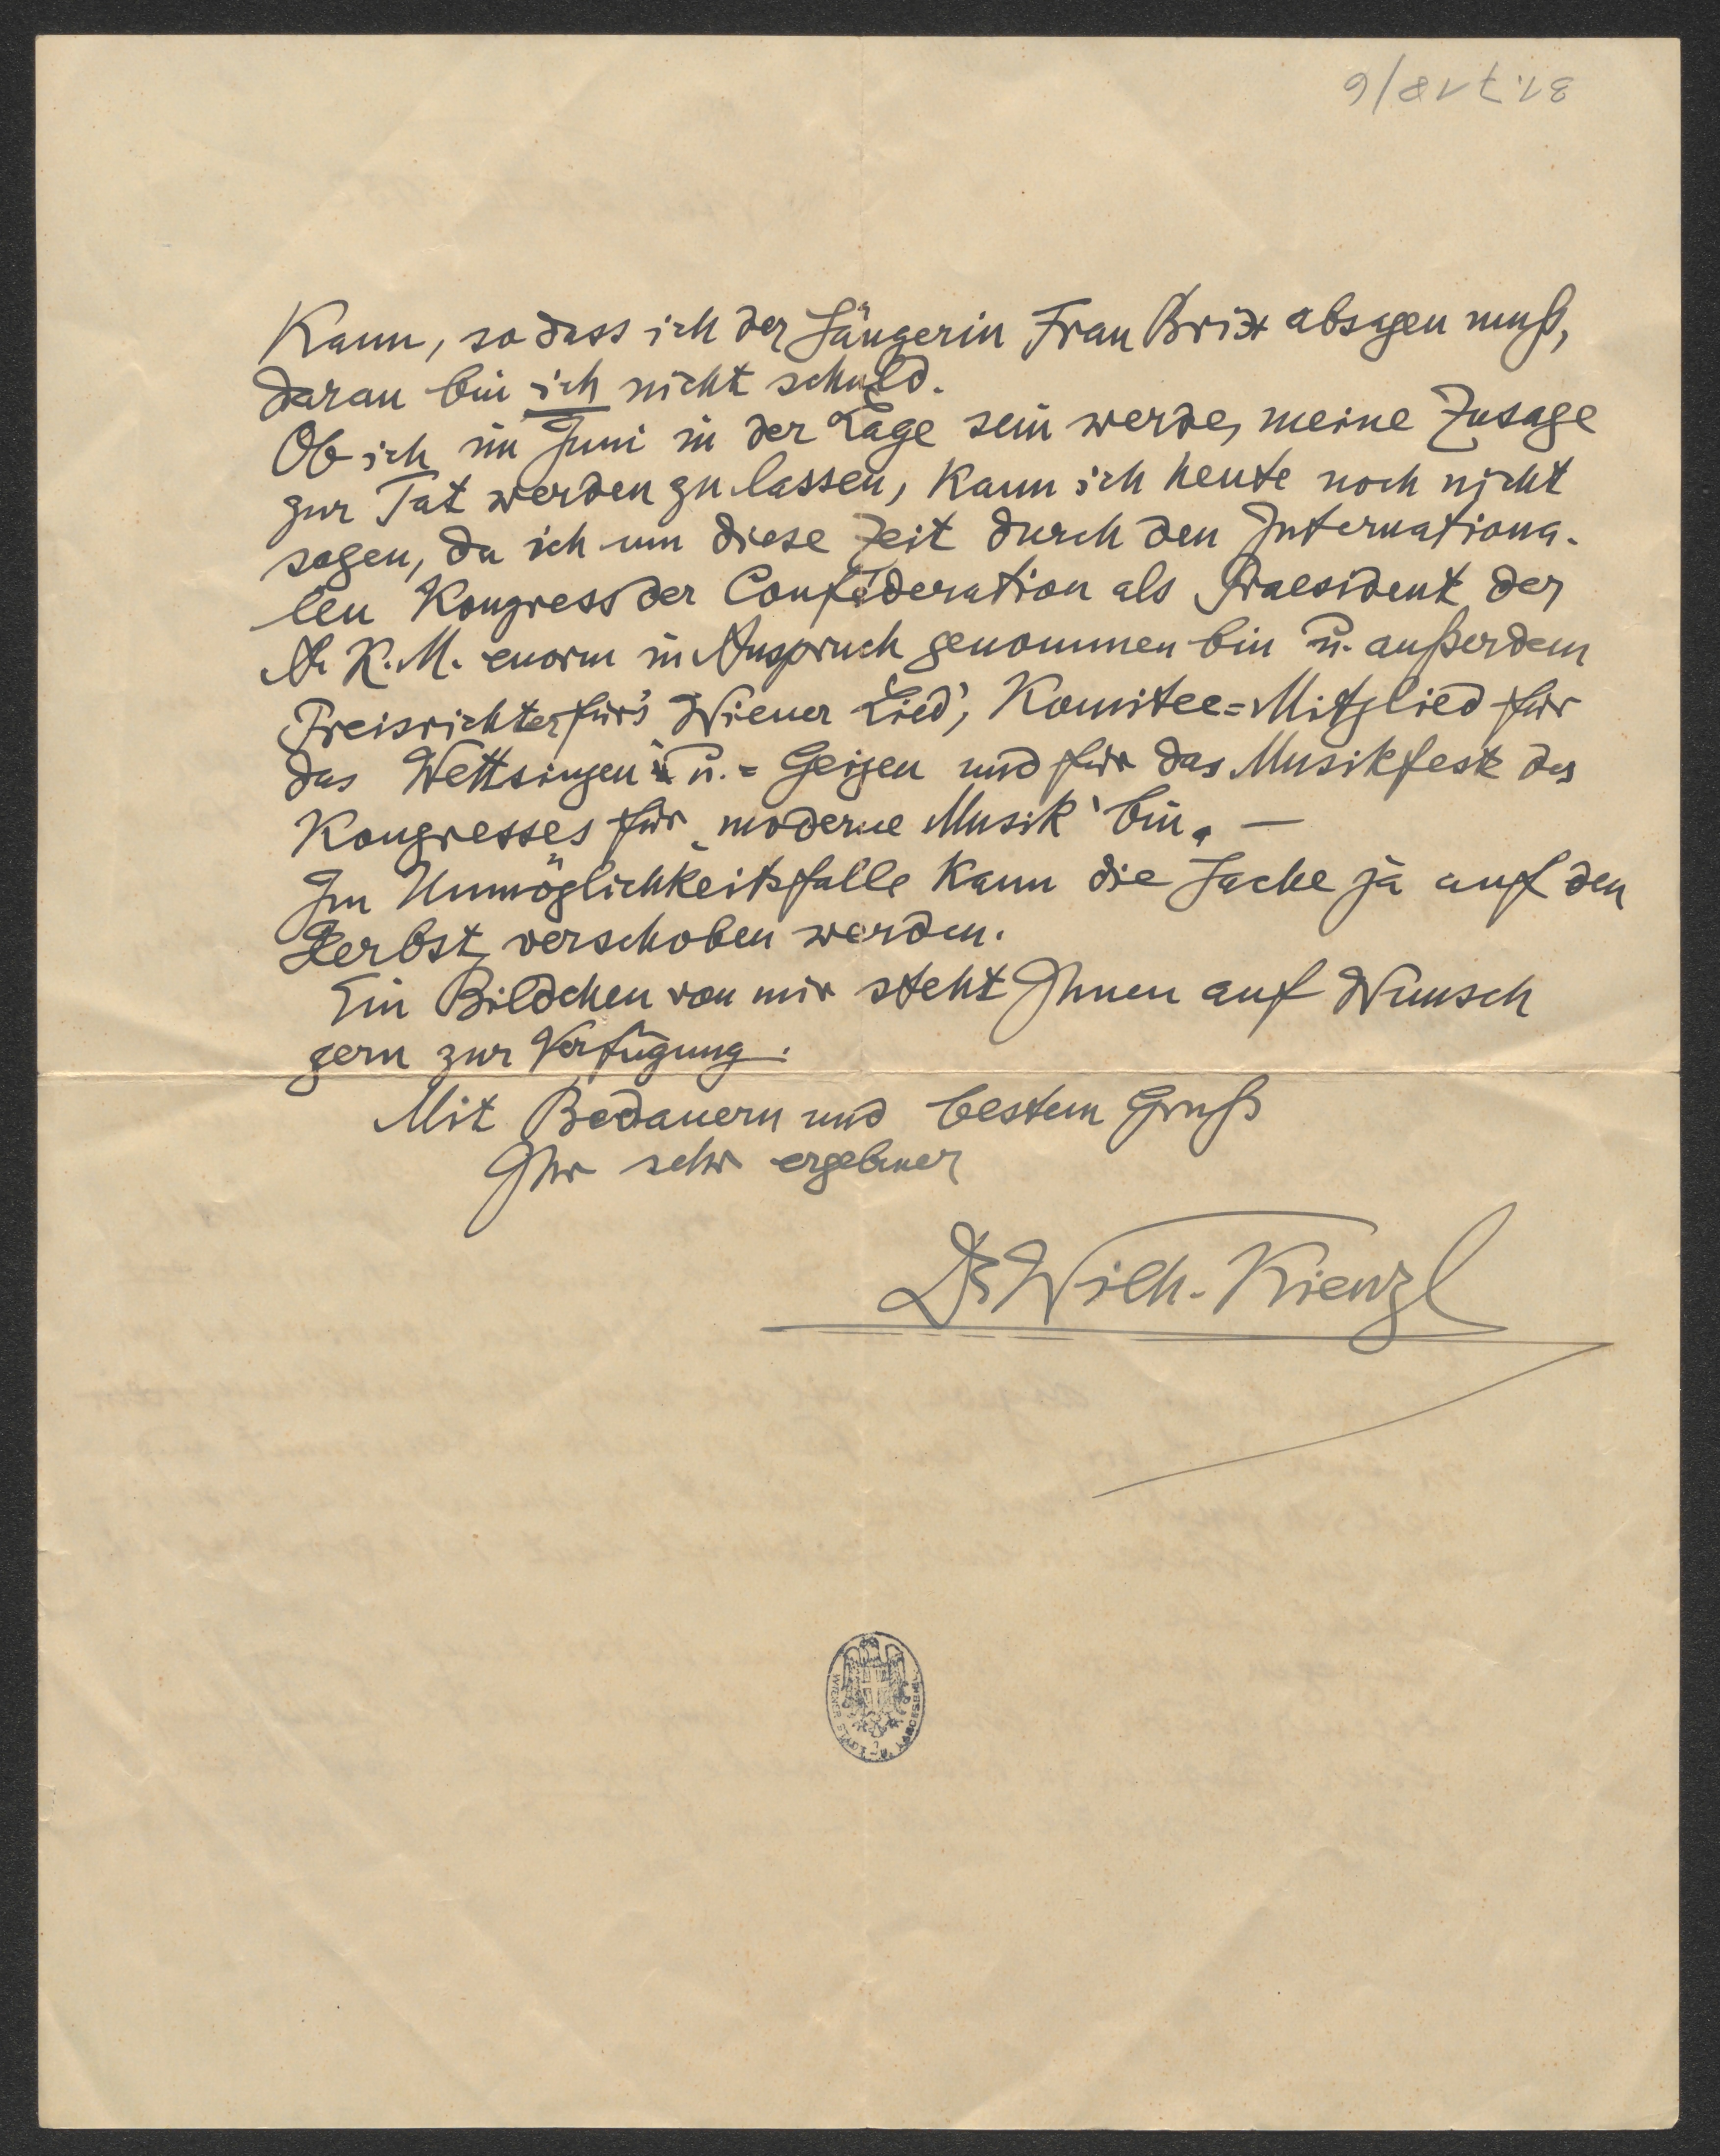 kann, so dass ich der Sängerin Frau Brix absagen muß,
daran bin ich nicht schuld.
Ob ich im Juni in der Lage sein werde, meine Zusage
zur Tat werden zu lassen, kann ich heute noch nicht
sagen, da ich um diese Zeit durch den Internationa-
len Kongress der Conféderation als Praesident der
A. K. M. enorm in Anspruch genommen bin u. außerdem
Preisrichter für's „Wiener Lied“, Komitee=Mitglied für
das Wettsingen u. = Geigen und für das Musikfest des
Kongresses für „moderne Musik“ bin. —
Im Unmöglichkeitsfalle kann die Sache ja auf den
Herbst verschoben werden.
Ein Bildchen von mir steht Ihnen auf Wunsch
gern zur Verfügung.
Mit Bedauern und bestem Gruß
Ihr sehr ergebener
Dr Wilh. Kienzl